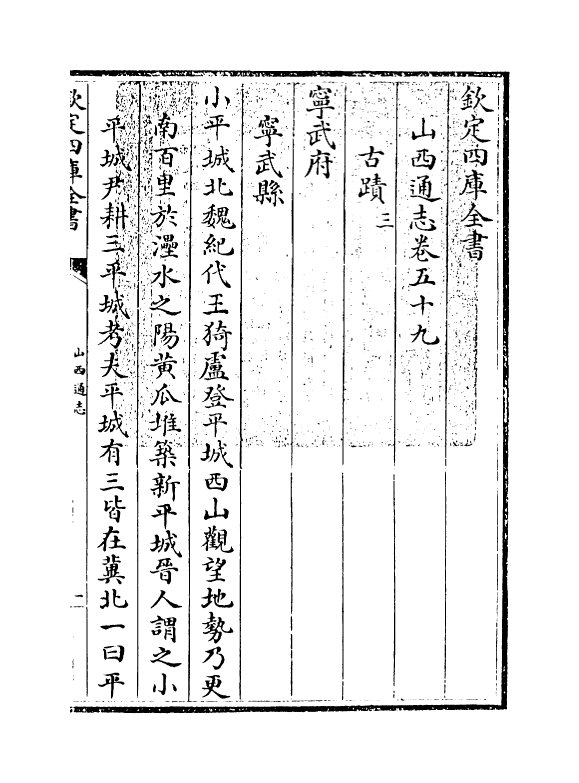 欽定四庫全書
山西通志卷五十九
古蹟三
寧武府
寧武縣
小平城北魏紀代王猗盧登平城西山觀望地勢乃更
南百里於㶟水之陽黄瓜堆築新平城晉人謂之小
平城尹耕三平城考夫平城有三皆在冀北一曰平
欽定四庫全書
山西通志